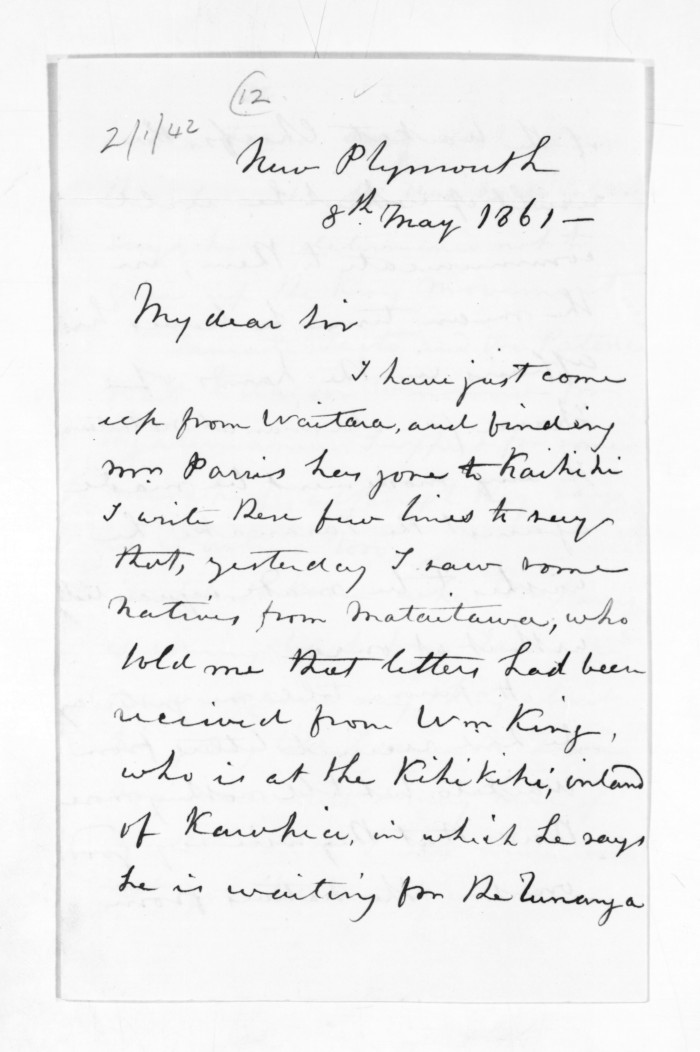 12
2/1/42
New Plymouth
8th May 1861 —
My dear Sir
I have just come
up from Waitara, and finding
Mr Parris has gone to Kaihihi
I write these few lines to say
that, yesterday I saw some
Natives from Mataitawa, who
told me that letters had been
received from Wm King,
who is at the Kihikihi, inland
of Kawhia, in which he says
he is waiting for the Runanga